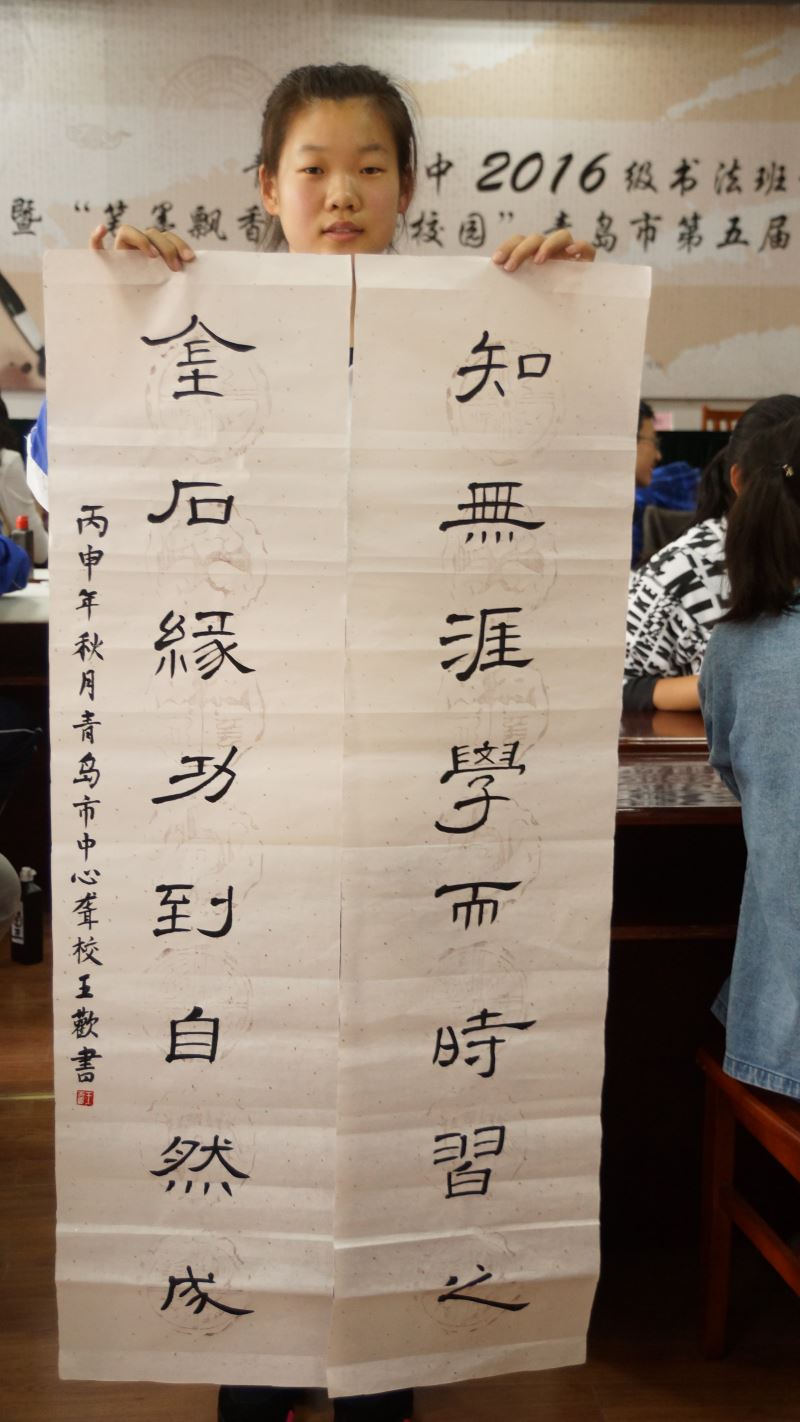 中 2016 级书法班
暨 “笔墨飘香 校园” 青岛市第五届
知無涯學而時習之
金石緣功到自然成
丙申年秋月青岛市中心聋校王歡書
NIKE